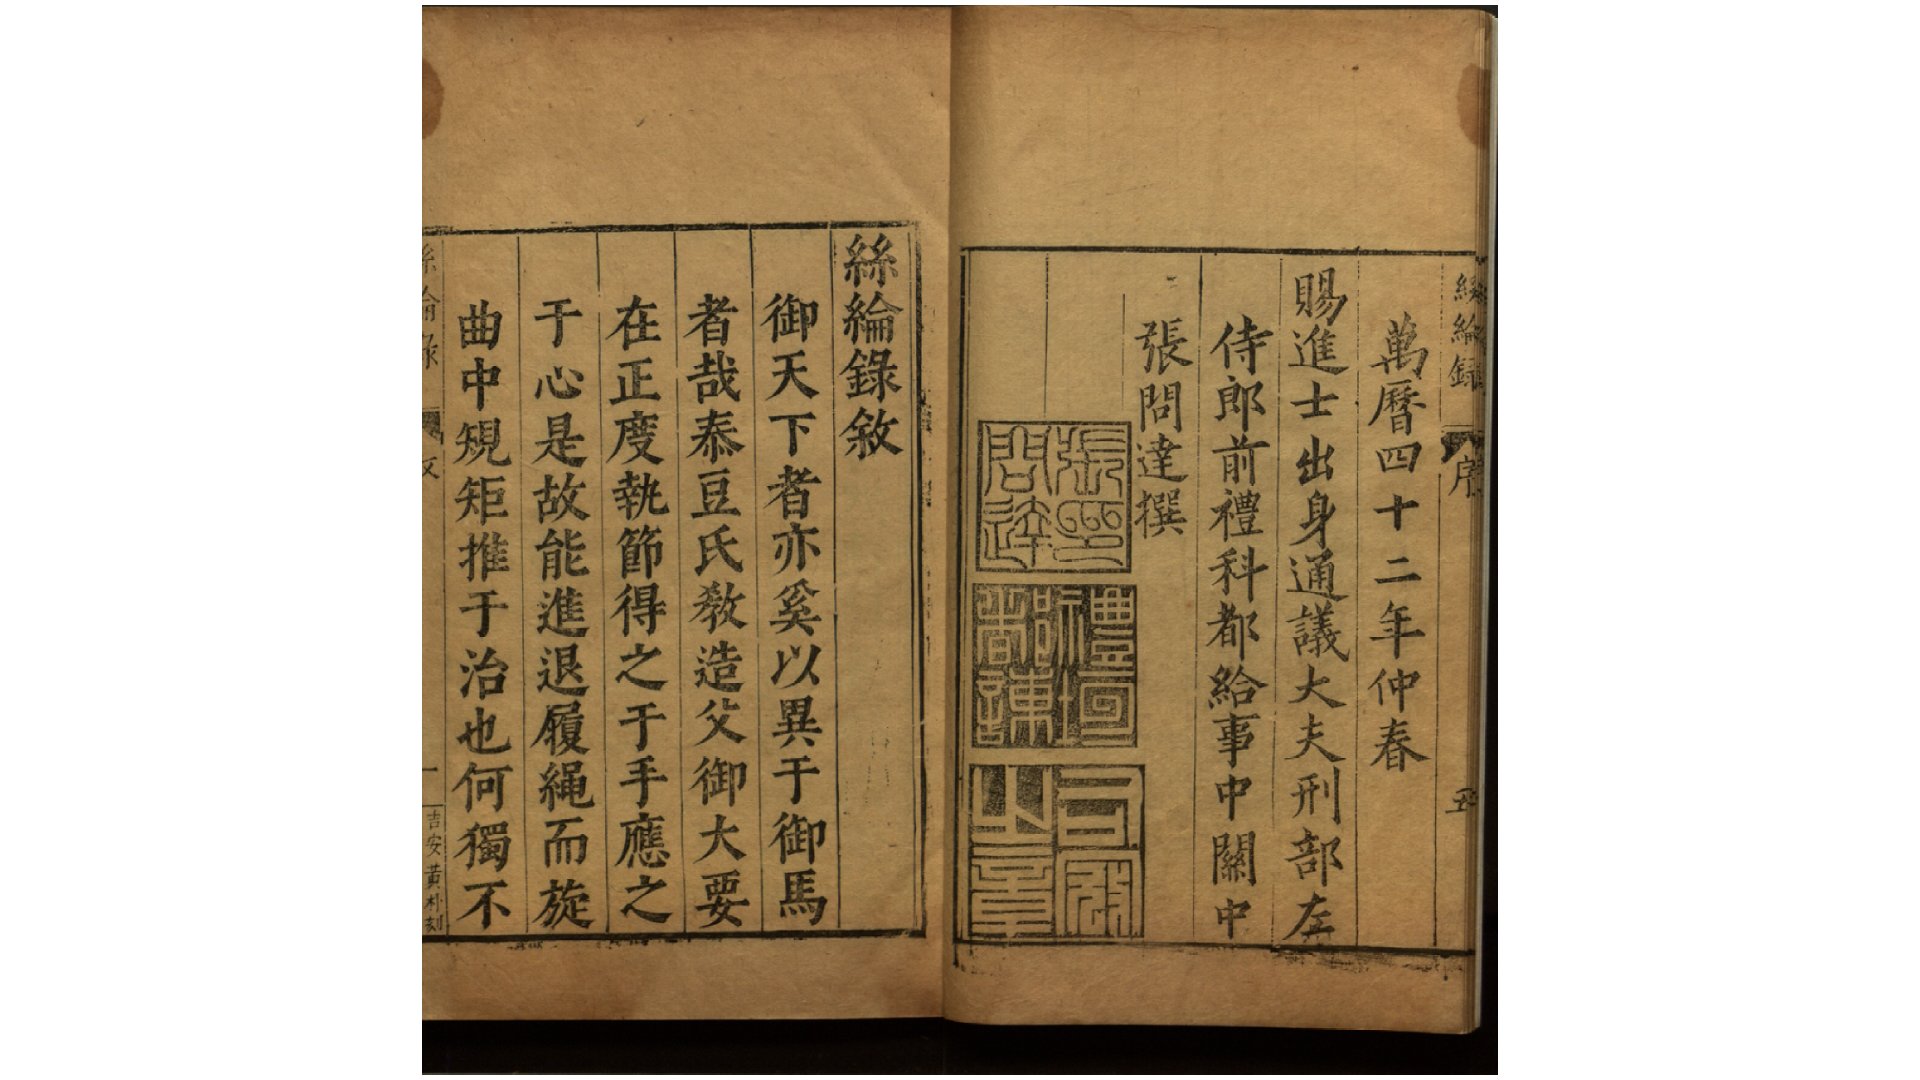 絲綸録
序
五
萬曆四十二年仲春
賜進士出身通議大夫刑部左
侍郎前禮科都給事中關中
張問達撰
張問達印
絲綸錄敘
御天下者亦奚以異于御馬
者哉泰豆氏敎造父御大要
在正度執節得之于手應之
于心是故能進退履繩而旋
曲中規矩推于治也何獨不
絲綸錄
一
吉安黃朴刻